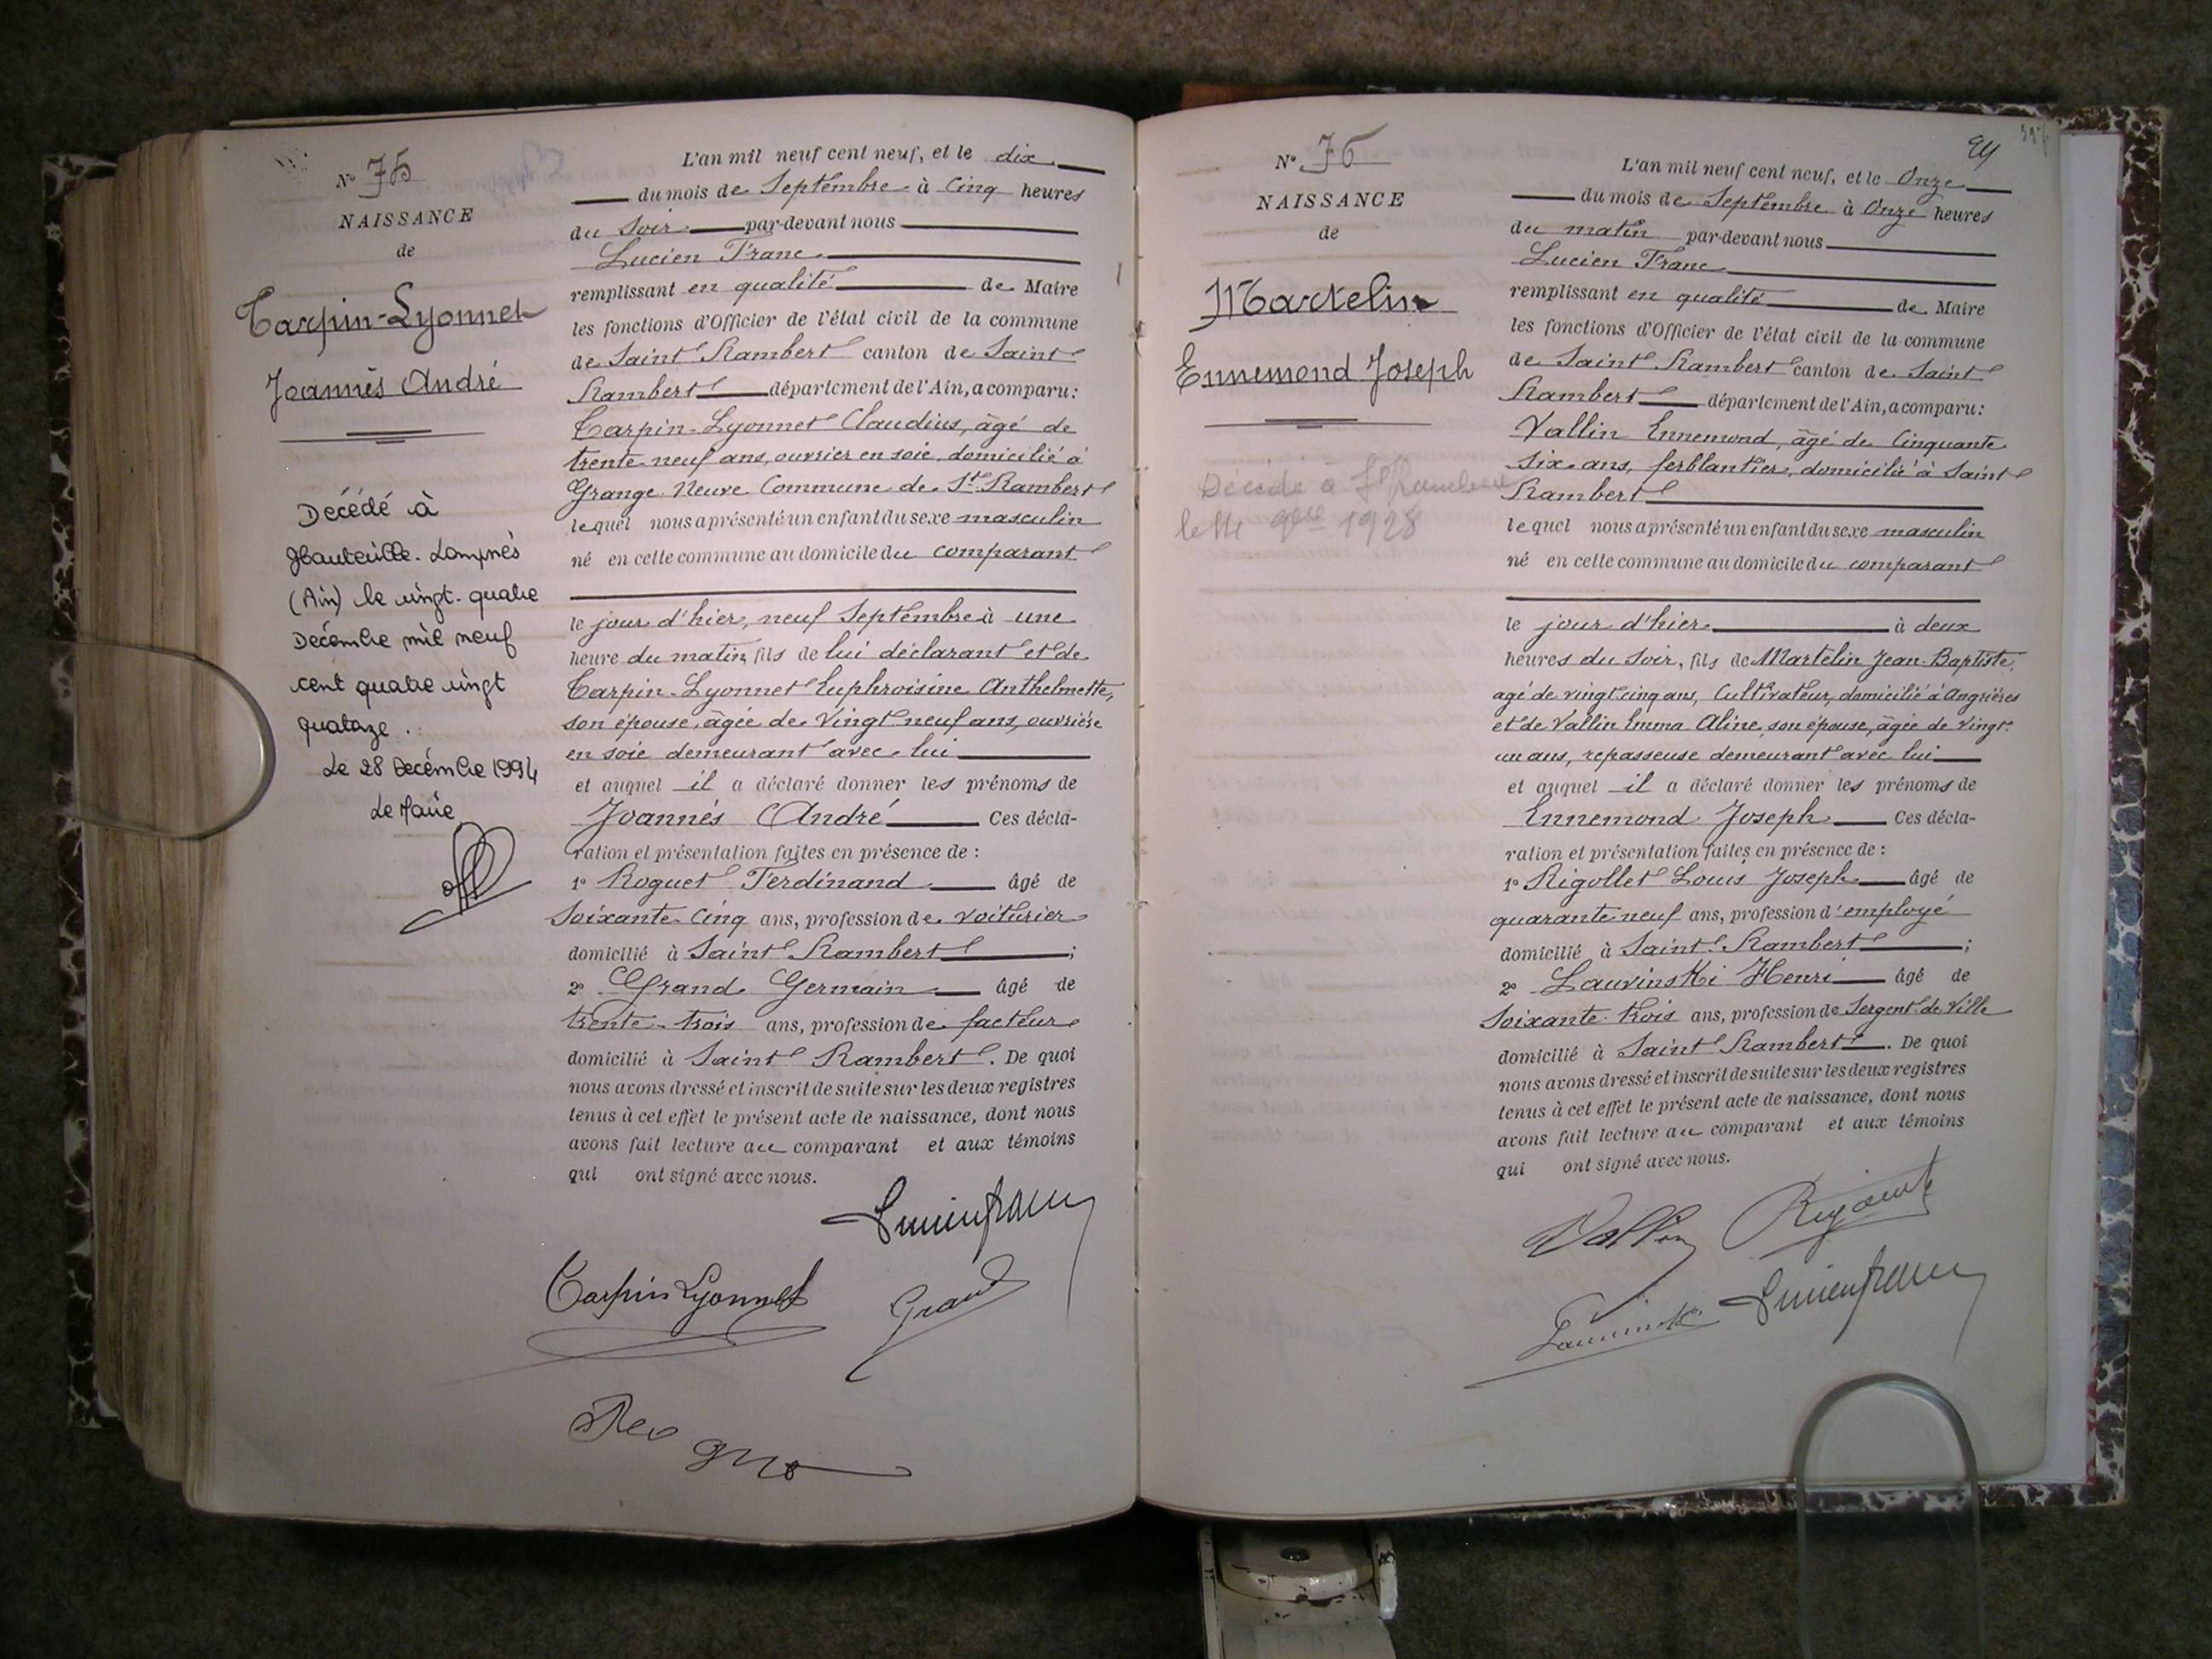 N° 75
NAISSANCE
de
Carpin-Lyonnet
Joannès André
Décédé à
Hauteville-Lompnès
(Ain) le vingt-quatre
Décembre mil neuf
cent quatre vingt
quatorze.
Le 28 Décembre 1994
Le Maire
L'an mil neuf cent neuf, et le dix
du mois de Septembre à Cinq heures
du Soir par-devant nous
Lucien Franc
remplissant en qualité de Maire
les fonctions d'Officier de l'état civil de la commune
de Saint Rambert canton de Saint
Rambert département de l'Ain, a comparu:
Carpin-Lyonnet Claudius, âgé de
trente neuf ans, ouvrier en soie, domicilié à
Grange Neuve Commune de St Rambert
lequel nous a présenté un enfant du sexe masculin
né en cette commune au domicile du comparant
le jour d'hier, neuf Septembre à une
heure du matin, fils de lui déclarant et de
Carpin-Lyonnet Euphroisine Anthelmette,
son épouse, âgée de Vingt neuf ans, ouvrière
en soie demeurant avec lui
et auquel il a déclaré donner les prénoms de
Joannès André Ces décla-
ration et présentation faites en présence de :
1° Roguet Ferdinand âgé de
Soixante-Cinq ans, profession de voiturier
domicilié à Saint Rambert ;
2° Grand Germain âgé de
trente-trois ans, profession de facteur
domicilié à Saint Rambert. De quoi
nous avons dressé et inscrit de suite sur les deux registres
tenus à cet effet le présent acte de naissance, dont nous
avons fait lecture au comparant et aux témoins
qui ont signé avec nous.
Lucien Franc
Carpin Lyonnet Grand
N° 76
NAISSANCE
de
Martelin
Ennemond Joseph
Décédé à St Rambert
le 9bre 1928
24
L'an mil neuf cent neuf, et le Onze
du mois de Septembre à Onze heures
du matin par-devant nous
Lucien Franc
remplissant en qualité de Maire
les fonctions d'Officier de l'état civil de la commune
de Saint Rambert canton de Saint
Rambert département de l'Ain, a comparu:
Vallin Ennemond, âgé de Cinquante
Six ans, ferblantier, domicilié à Saint
Rambert
lequel nous a présenté un enfant du sexe masculin
né en cette commune au domicile du comparant
le jour d'hier à deux
heures du Soir, fils de Martelin Jean-Baptiste,
agé de vingt cinq ans, Cultivateur, domicilié à Angrières
et de Vallin Emma Aline, son épouse, âgée de Vingt-
un ans, repasseuse demeurant avec lui
et auquel il a déclaré donner les prénoms de
Ennemond Joseph Ces décla-
ration et présentation faites en présence de :
1° Rigollet Louis Joseph âgé de
quarante neuf ans, profession d'employé
domicilié à Saint Rambert ;
2° Lauvinski Henri âgé de
Soixante-trois ans, profession de Sergent de Ville
domicilié à Saint Rambert. De quoi
nous avons dressé et inscrit de suite sur les deux registres
tenus à cet effet le présent acte de naissance, dont nous
avons fait lecture au comparant et aux témoins
qui ont signé avec nous.
Vallin
Lucien Franc